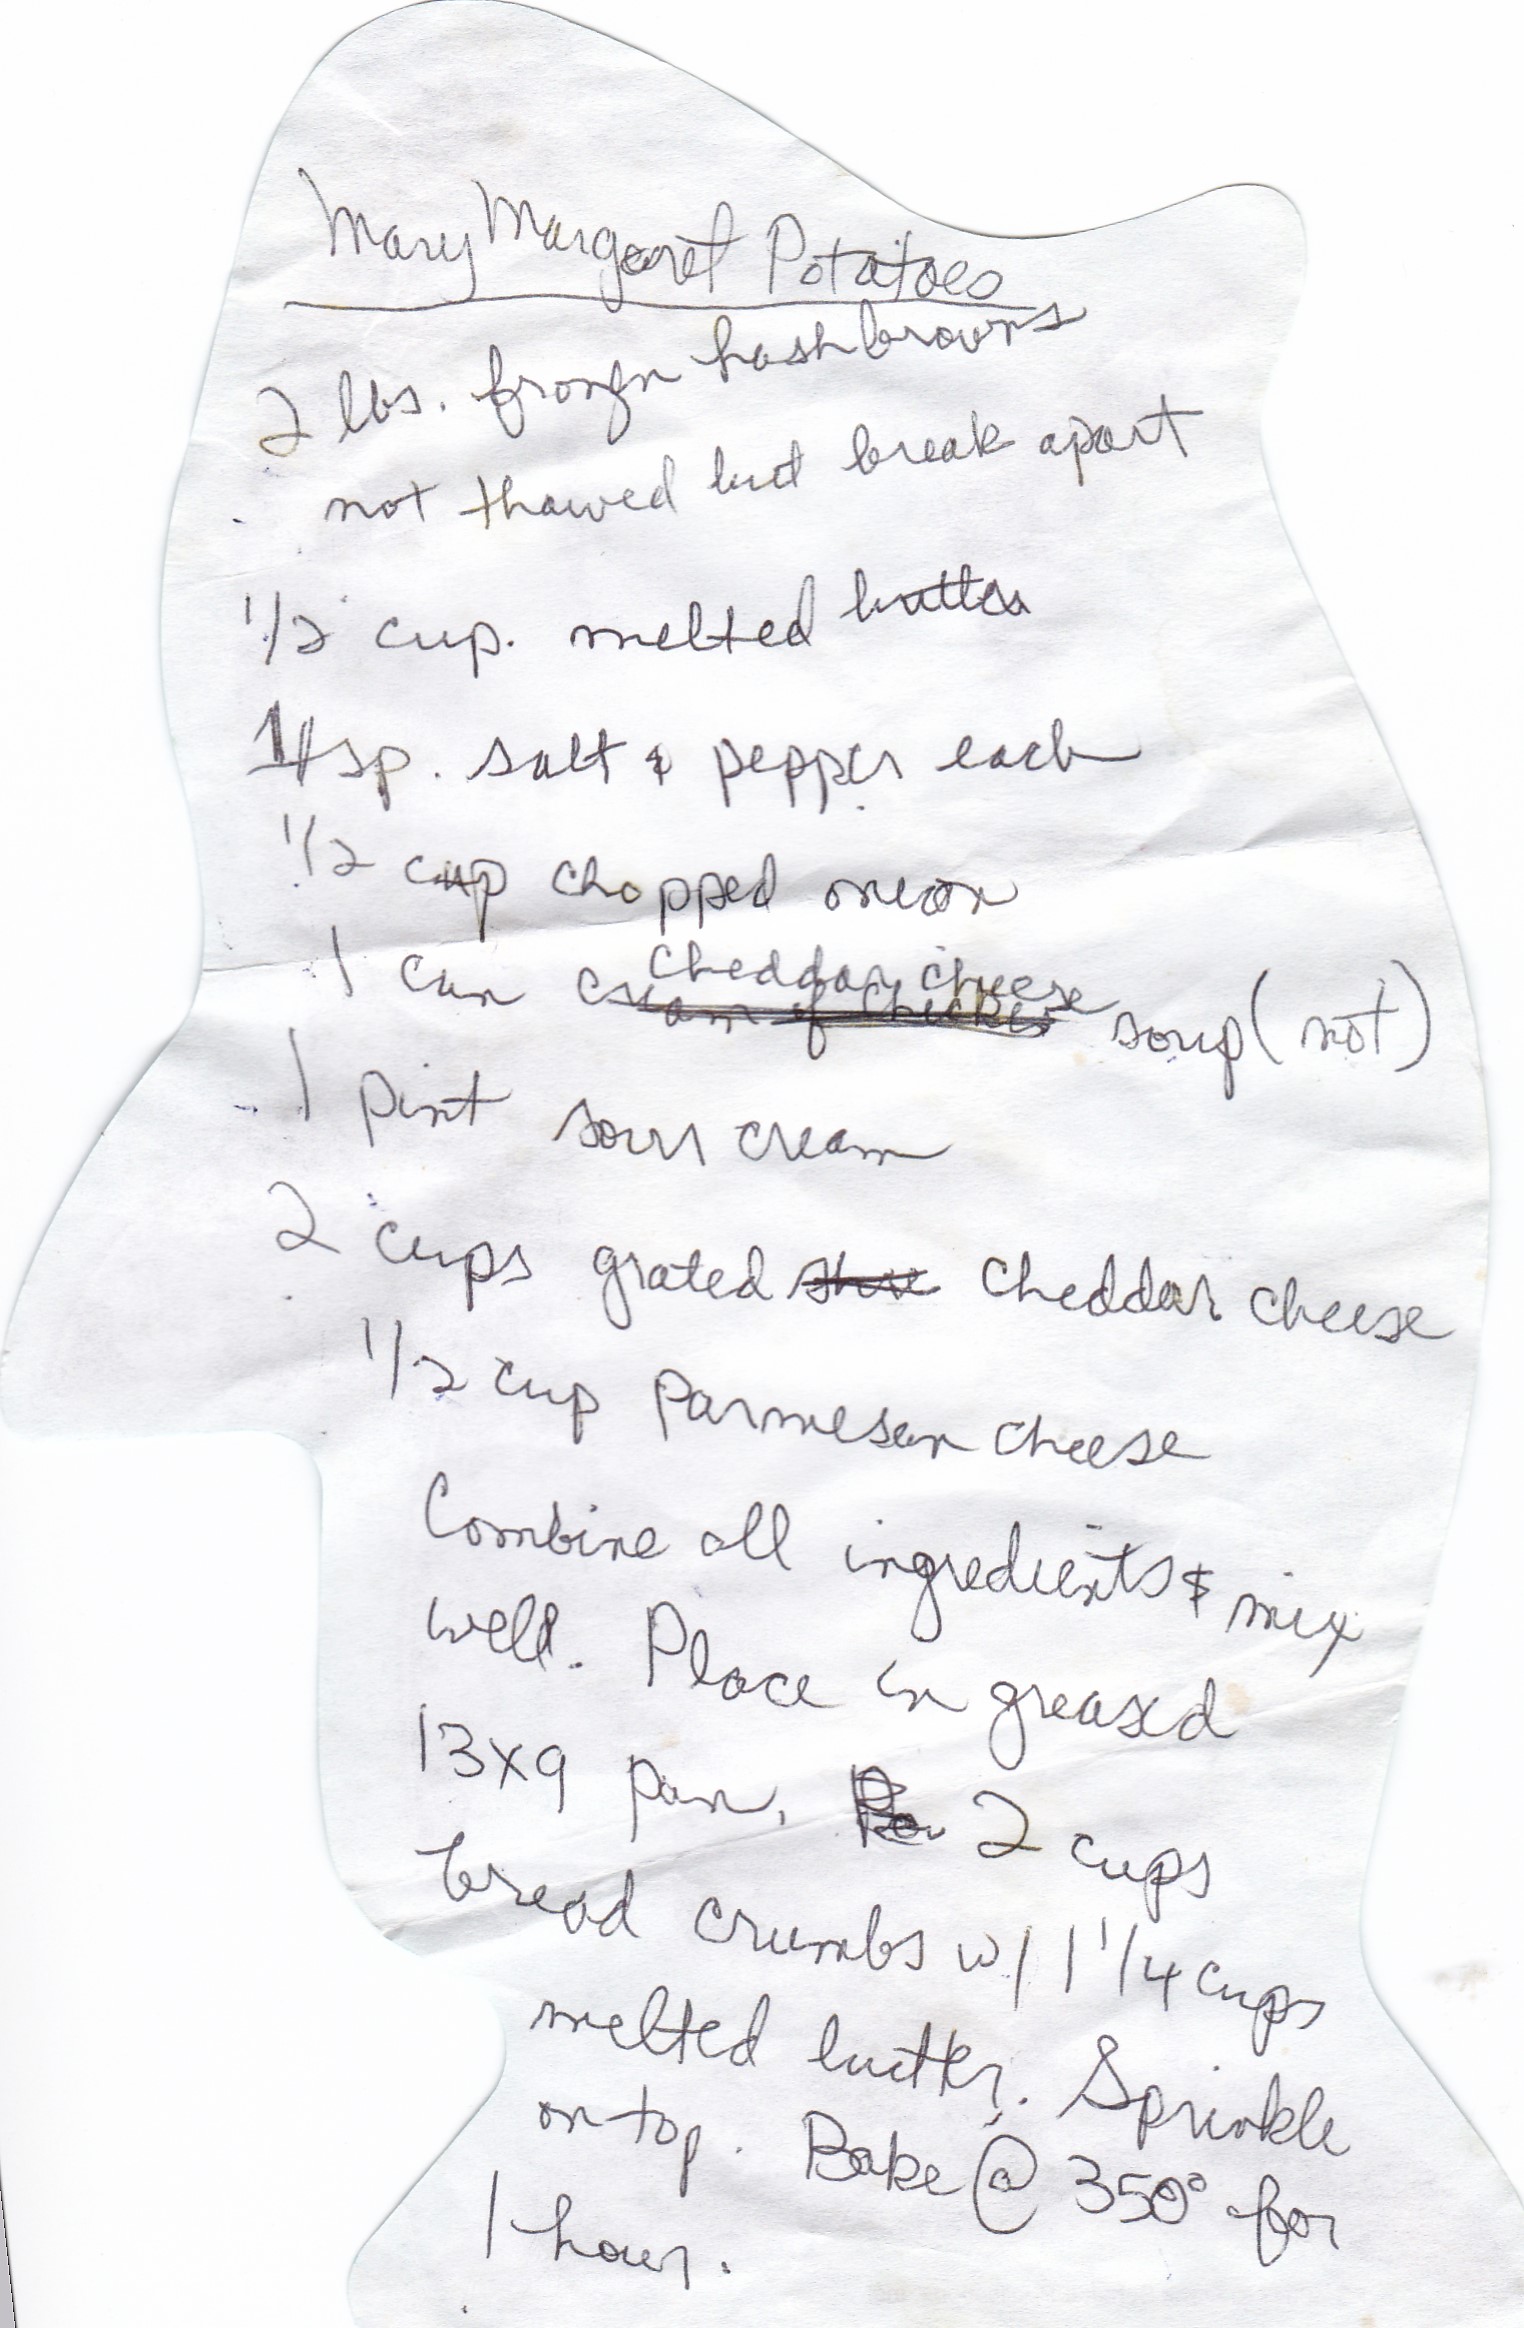 Mary Margaret Potatoes
2 lbs. frozen hashbrowns
not thawed but break apart
1/2 cup. melted butter
1 tsp. salt & pepper each
1/2 cup chopped onion
cheddar cheese
1 can cream of chicken soup (not)
1 pint sour cream
2 cups grated cheddar cheese
1/2 cup parmesan cheese
Combine all ingredients & mix
well. Place in greased
13x9 pan. 2 cups
bread crumbs w/ 1 1/4 cups
melted butter. Sprinkle
on top. Bake @ 350° for
1 hour.